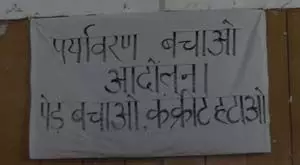 पर्यावरण बचाओ
आंदोलन।
पेड़ बचाओ, कंक्रीट हटाओ